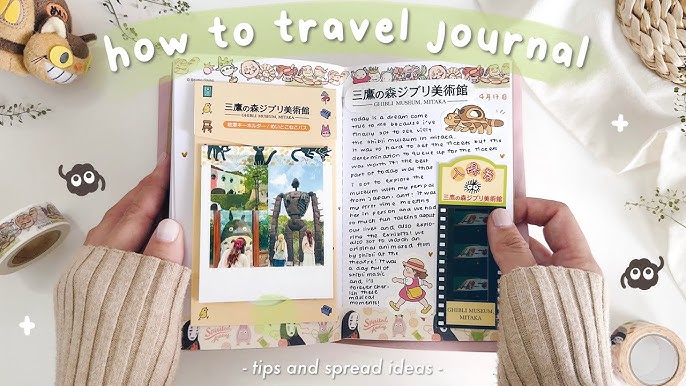 how to travel journal
三鷹の森ジブリ美術館
GHIBLI MUSEUM, MITAKA
三鷹の森ジブリ美術館
GHIBLI MUSEUM, MITAKA
4月14日
today is a dream come
true to me because i've
finally got to see visit
the ghibli museum in mitaka.
it was so hard to get the tickets but the
determination to queue up for the tickets
was worth it! the best
part of today was that
i got to explore the
museum with my penpal
from japan, ami! it was
my first time meeting
her in person and we had
so much fun talking about
our lives and also explo-
ring the exhibits! we
also got to watch an
original animated film
by ghibli at the
theatre! it was
a day full of
ghibli magic
and, i'll
forever cher-
ish these
magical
moments!
入場券
三鷹の森ジブリ美術館
GHIBLI MUSEUM,
MITAKA
- tips and spread ideas -